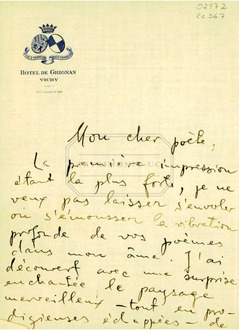 02172
CC 067
HOTEL DE GRIGNAN
VICHY
Mon cher poète:
La première impression
étant la plus forte, je ne
veux pas laisser s'envoler
ou s'émousser la vibration
profonde de vos poèmes
dans mon âme. J'ai
découvert avec une surprise
enchantée le paysage
merveilleux – tout en pro-
digieuses échappées – de